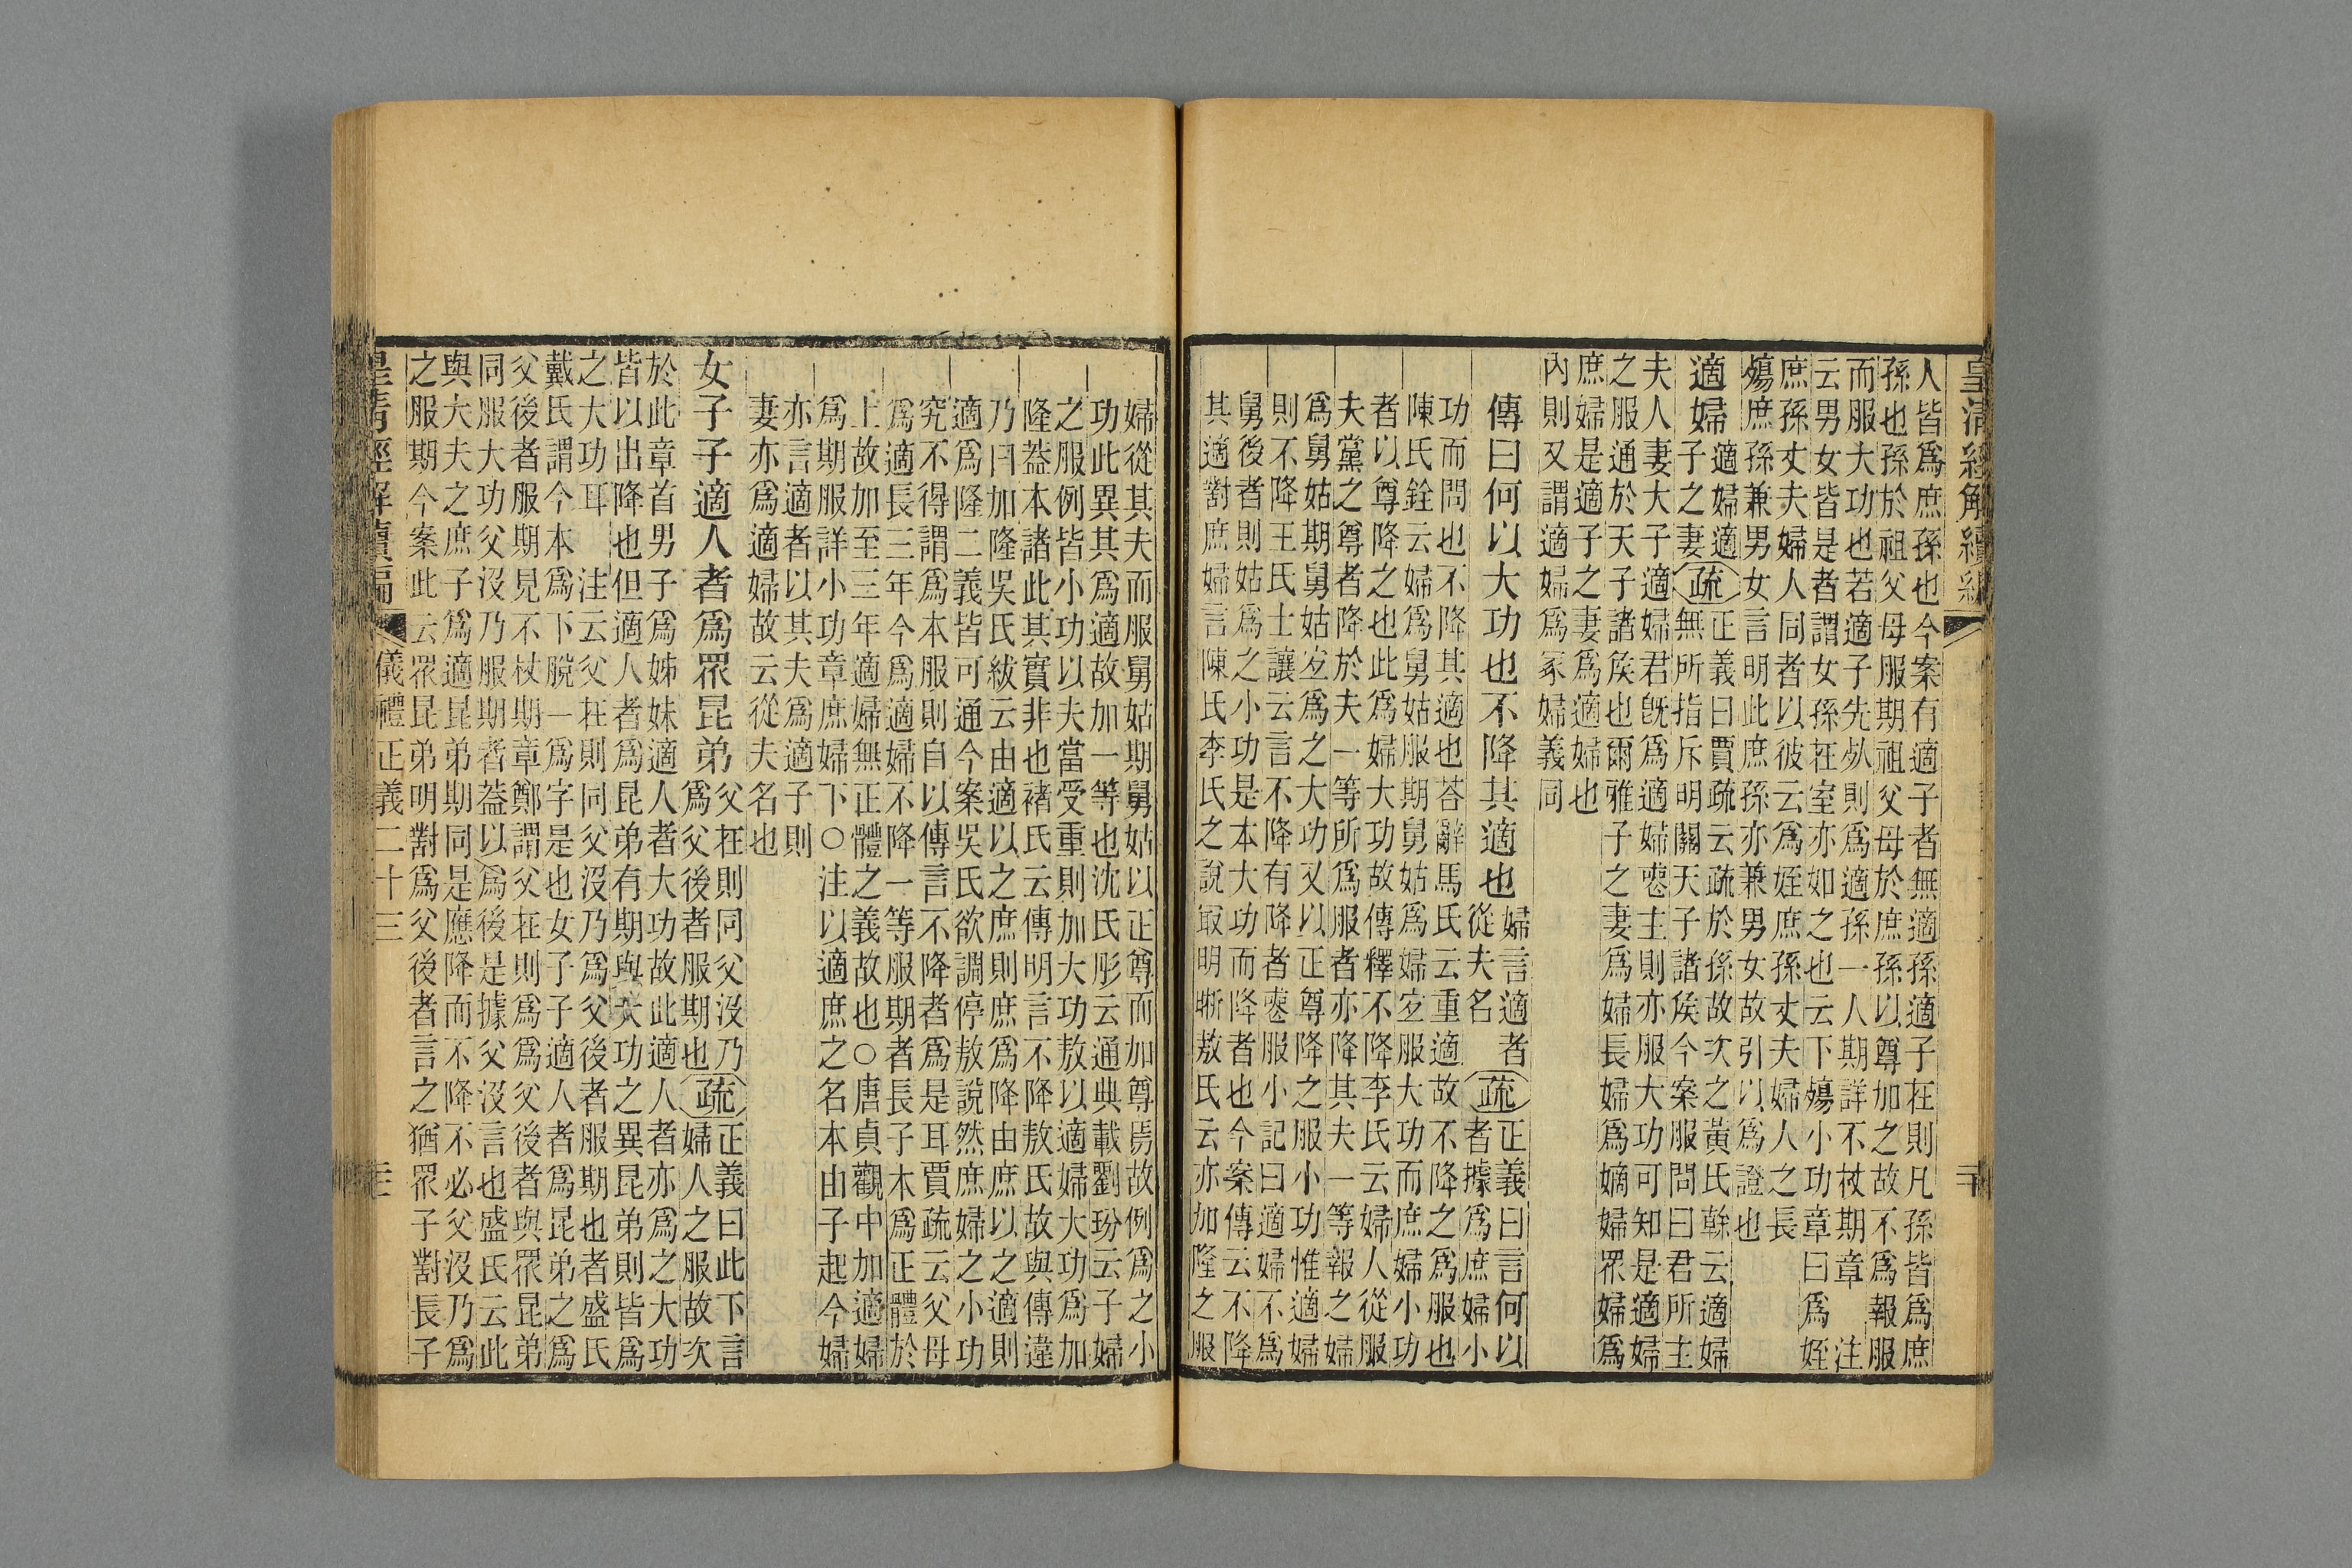 皇清經解續編
人皆爲庶孫也今案有適子者無適孫適子在則凡孫皆爲庶
孫也孫於祖父母服期祖父母於庶孫以尊加之故不爲報服
而服大功也若適子先䣃則爲適孫一人期詳不杖期章　注
云男女皆是者謂女孫在室亦如之也云下殤小功章曰爲姪
庶孫丈夫婦人同者以彼云爲姪庶孫丈夫婦人之長
殤庶孫兼男女言明此庶孫亦兼男女故引以爲證也
適婦適婦適
子之妻疏正義曰賈疏云疏於孫故次之黃氏榦云適婦
無所指斥明關天子諸矦今案服問曰君所主
夫人妻大子適婦君旣爲適婦喪主則亦服大功可知是適婦
之服通於天子諸矦也爾雅子之妻爲婦長婦爲嫡婦眾婦爲
庶婦是適子之妻爲適婦也
內則又謂適婦爲冢婦義同
傳曰何以大功也不降其適也婦言適者
從夫名疏正義曰言何以
者據爲庶婦小
功而問也不降其適也荅辭馬氏云重適故不降之爲服也
陳氏銓云婦爲舅姑服期舅姑爲婦宜服大功而庶婦小功
者以尊降之也此爲婦大功故傳釋不降李氏云婦人從服
夫黨之尊者降於夫一等所爲服者亦降其夫一等報之婦
爲舅姑期舅姑宜爲之大功又以正尊降之服小功惟適婦
則不降王氏士讓云言不降有降者喪服小記曰適婦不爲
舅後者則姑爲之小功是本大功而降者也今案傳云不降
其適對庶婦言陳氏李氏之說最明晰敖氏云亦加隆之服
婦從其夫而服舅姑期舅姑以正尊而加尊焉故例爲之小
功此異其爲適故加一等也沈氏彤云通典載劉玢云子婦
之服例皆小功以夫當受重則加大功敖以適婦大功爲加
隆葢本諸此其實非也褚氏云傳明言不降敖氏故與傳違
乃曰加隆吳氏紱云由適以之庶則庶爲降由庶以之適則
適爲隆二義皆可通今案吳氏欲調停敖說然庶婦之小功
究不得謂爲本服則自以傳言不降者爲是耳賈疏云父母
爲適長三年今爲適婦不降一等服期者長子本爲正體於
上故加至三年適婦無正體之義故也○唐貞觀中加適婦
爲期服詳小功章庶婦下○注以適庶之名本由子起今婦
亦言適者以其夫爲適子則
妻亦爲適婦故云從夫名也
女子子適人者爲眾昆弟父在則同父沒乃
爲父後者服期也疏正義曰此下言
婦人之服故次
於此章首男子爲姊妹適人者大功故此適人者亦爲之大功
皆以出降也但適人者爲昆弟有期與大功之異昆弟則皆爲
之大功耳　注云父在則同父沒乃爲父後者服期也者盛氏
戴氏謂今本爲下脫一爲字是也女子子適人者爲昆弟之爲
父後者服期見不杖期章鄭謂父在則爲爲父後者與眾昆弟
同服大功父沒乃服期者葢以爲後是據父沒言也盛氏云此
與大夫之庶子爲適昆弟期同是應降而不降不必父沒乃爲
之服期今案此云眾昆弟明對爲父後者言之猶眾子對長子
皇清經解續編　儀禮正義二十三